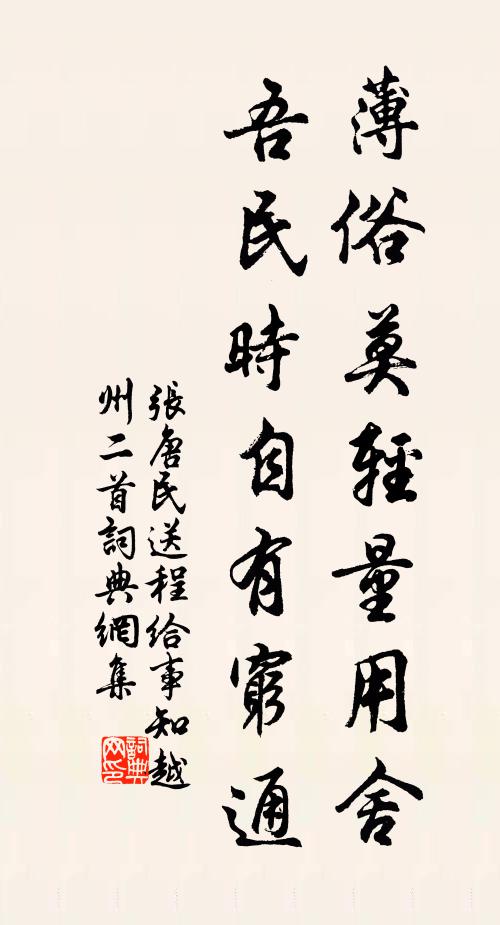 薄俗莫輕量用舍
吾民時自有窮通
張唐民送程給事知越
州二首詞典網集
詞典
网印